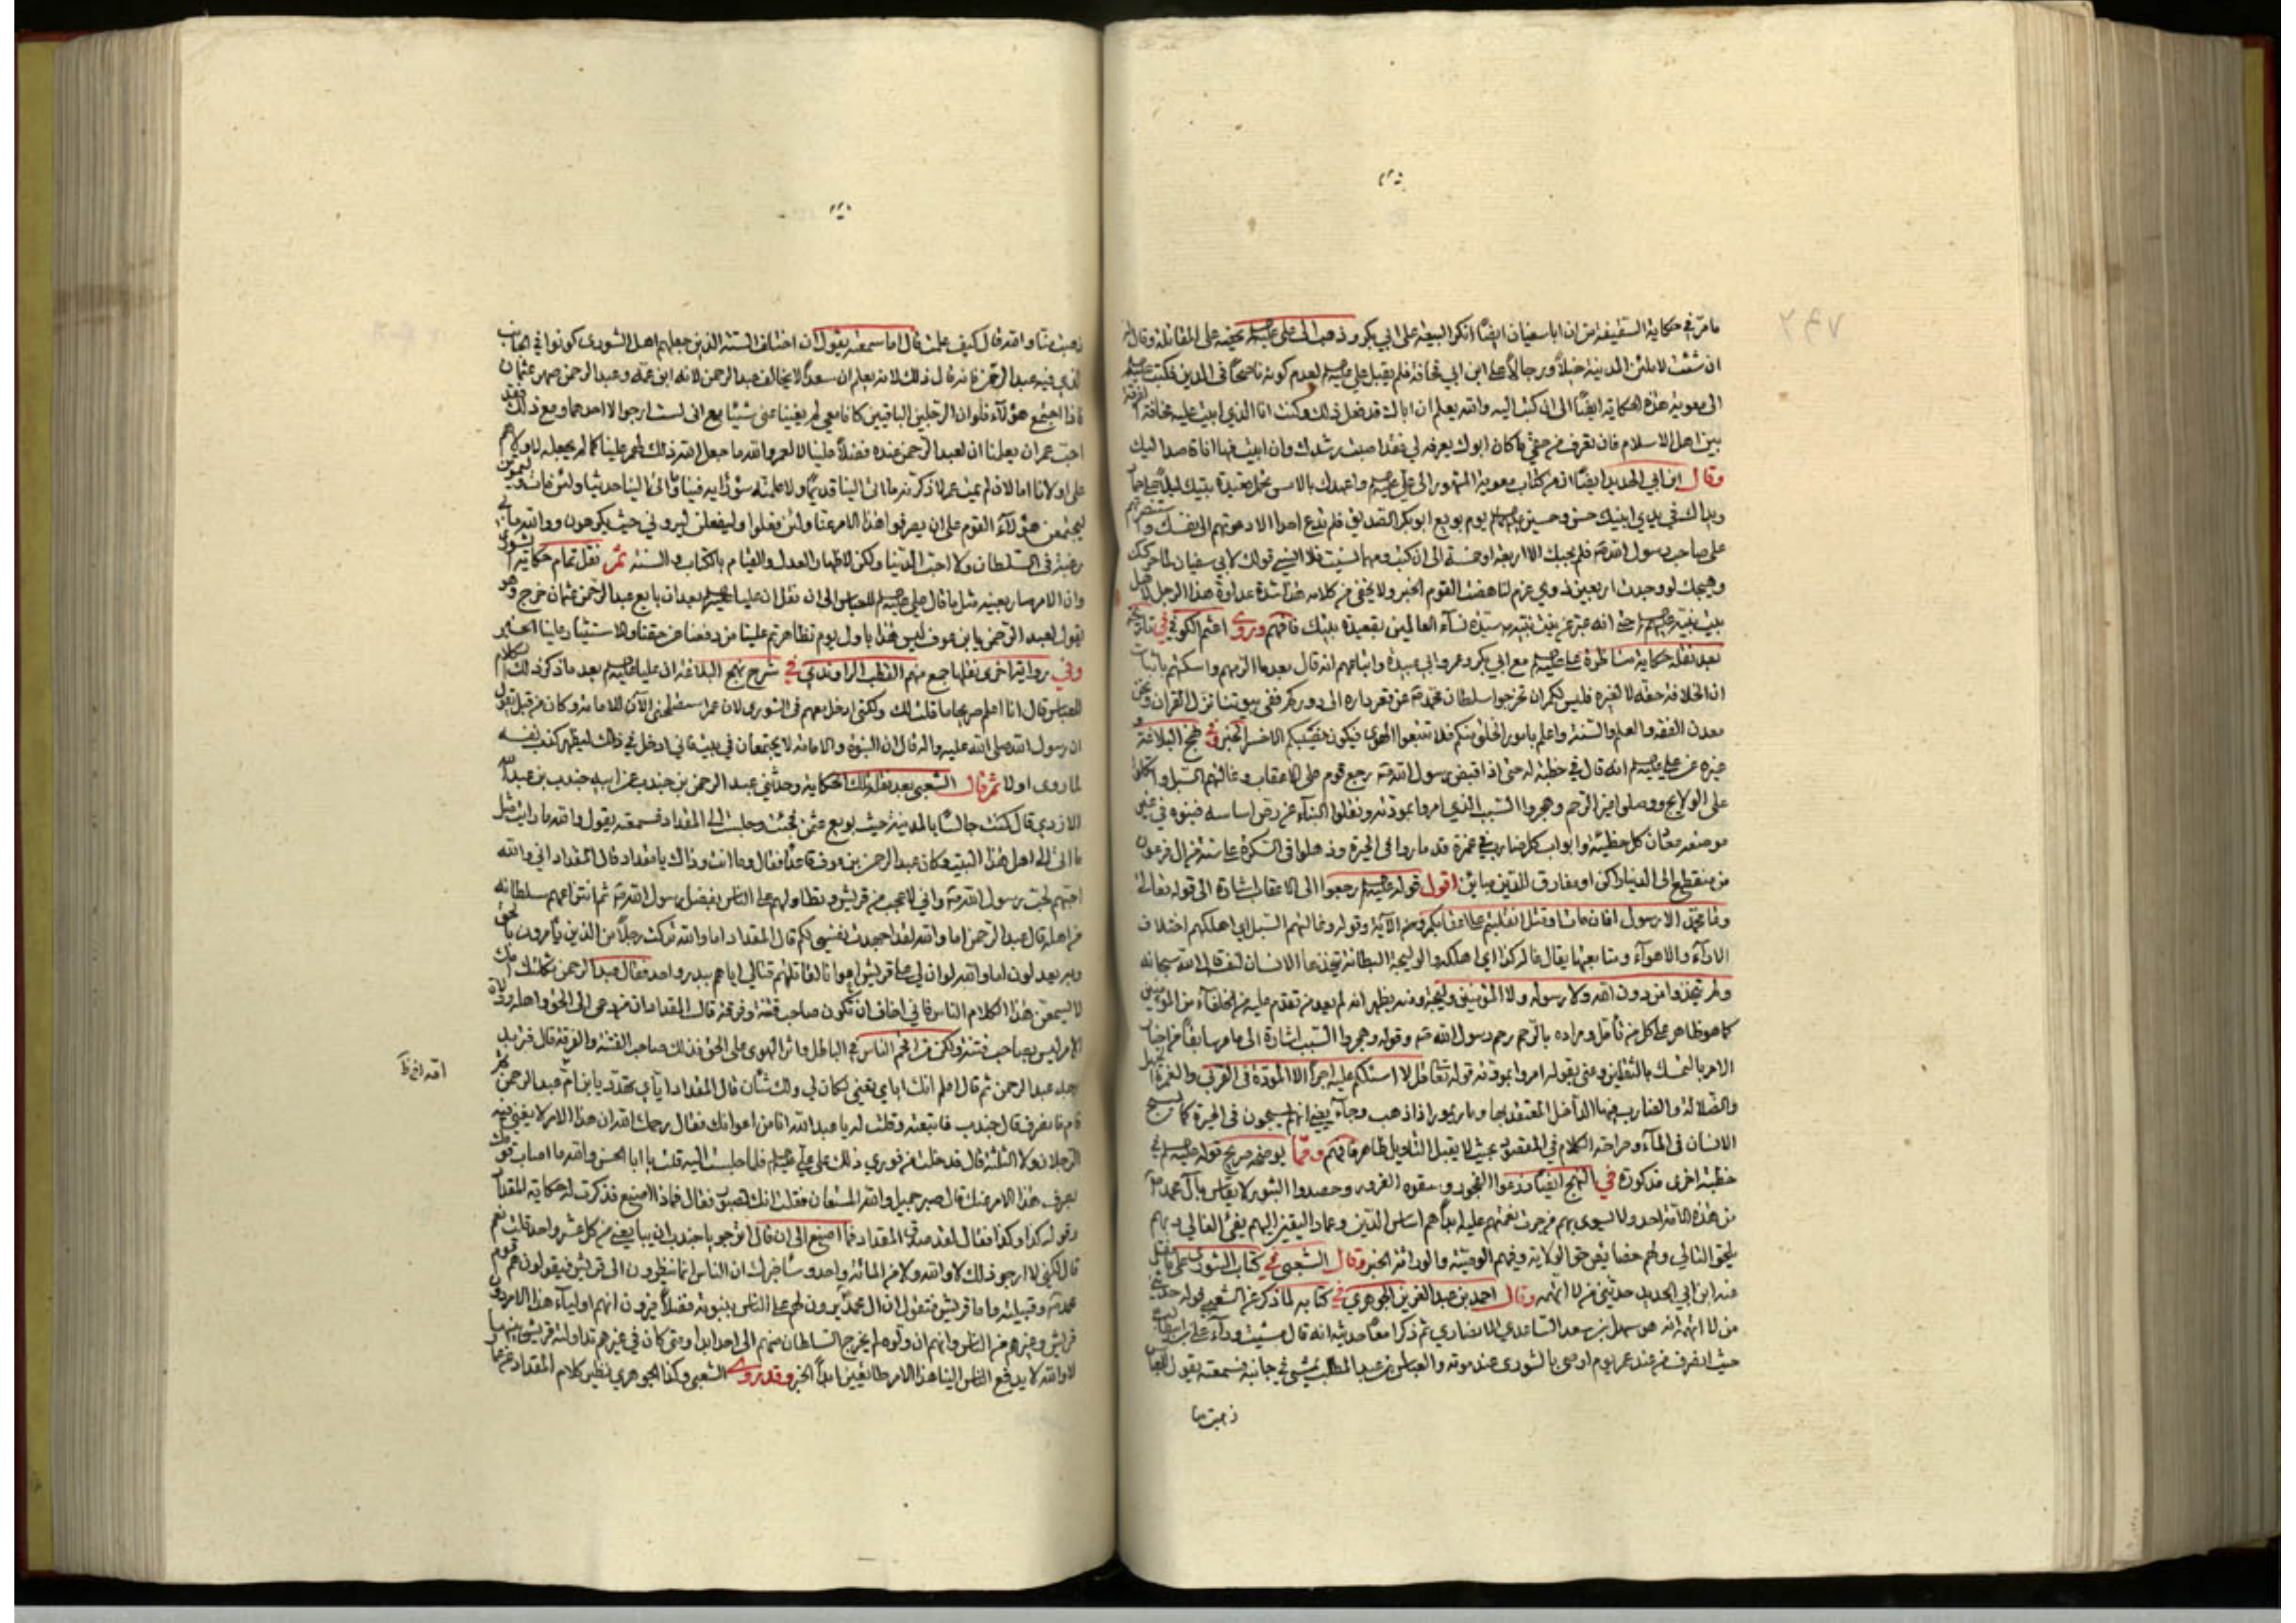 مامرّ في حكاية السقيفة من ان ابا سفيان ايضًا انكر البيعة على ابي بكر وذهب الى علي عليه السلم يحثه على المقاتلة وقال له
ان شئت لاملئن المدينة خيلًا ورجالًا على ابن ابي قحافة فلم يقبل علي عليه السلم لعدم كونه ناصحًا في الدين فكتب عليه السلم
الى معوية هذه الحكاية ايضًا الى ان كتب اليه والله يعلم ان اباك قد فعل ذلك وكنت انا الذي ابيت عليه مخافة الفرقة
بين اهل الاسلام فان تعرف من حقي ما كان ابوك يعرفه لي فقد اصبت رشدك وان ابيت فها انا قاصد اليك
وقال ابن ابي الحديد ايضًا ان من كتاب معوية المشهور الى علي عليه السلم واعهدك بالامس تحمل قعيدة بيتك ليلًا على حمار
ويداك في يدي ابنيك حسن وحسين يوم بويع ابو بكر الصديق فلم تدع احدا الا دعوتهم الى نفسك واستنصرتهم
على صاحب رسول الله فلم يجبك الا اربعة او خمسة الى ان كتب ومهما نسيت فلا انسى قولك لابي سفيان لما حركك
وهيجك لو وجدت اربعين ذوي عزم لناهضت القوم الخبر ولا يخفى من كلامه هذا شدة عداوة هذا الرجل
حتى انه عبر عن بنت نبيه سيدة نسآء العالمين بقعيدة بيتك فافهم وروى اعثم الكوفي في تاريخه
بعد نقله حكاية مناظرة علي عليه السلم مع ابي بكر وعمر وابي عبيدة واتباعهم انه قال بعدما الزمهم واسكتهم باثبات
ان الخلافة حقه لا لغيره فليس لكم ان تخرجوا سلطان محمد عن قعر داره الى دوركم ففي بيوتنا نزل القران ونحن
معدن الفقه والعلم والسنة واعلم بامور الخلق منكم فلا تتبعوا الهوى فيكون نصيبكم الاخسر الخبر وفي نهج البلاغة و
غيره عن علي عليه السلم انه قال في خطبة له حتى اذا قبض رسول الله رجع قوم على الاعقاب وغالتهم السبل واتكلوا
على الولايج ووصلوا غير الرحم وهجروا السبب الذي امروا بمودته ونقلوا البنآء عن رص اساسه فبنوه في غير
موضعه معادن كل خطيئة وابواب كل ضارب في غمرة قد ماروا في الحيرة وذهلوا في السكرة على سنة من ال فرعون
من منقطع الى الدنيا راكن او مفارق للدين مباين اقول قوله عليه السلم رجعوا الى الاعقاب اشارة الى قوله تعالى
وما محمد الا رسول افان مات او قتل انقلبتم على اعقابكم الآية وقوله وغالتهم السبل اي اهلكهم اختلاف
الارآء والاهوآء ومتابعتها يقال غاله كذا اي اهلكه والوليجة البطانة يتخذها الانسان لنفسه قال الله سبحانه
ولم يتخذوا من دون الله ولا رسوله ولا المؤمنين وليجة ومنه يظهر انه لم يعد من تقدم عليه من الخلفآء من المؤمنين
كما هو ظاهر على كل من تأمل ومراده بالرحم رحم رسول الله وقوله وهجروا السبب اشارة الى ما مر سابقًا من اخبار
الامر بالتمسك بالثقلين وعنى بقوله امروا بمودته قوله تعالى قل لا اسئلكم عليه اجرًا الا المودة في القربى والغمرة الجهل
والضلالة والضارب فيها الداخل المعتقد بها ومار يمور اذا ذهب وجآء يعني انهم يسبحون في الحيرة كما يسبح
الانسان في المآء وصراحة الكلام في المقصود بحيث لا يقبل التأويل ظاهر فافهم ومما يوضحه صريح قوله عليه السلم في
خطبة اخرى مذكورة في النهج ايضًا زرعوا الفجور وسقوه الغرور وحصدوا الثبور لا يقاس بآل محمد
من هذه الامة احد ولا يسوى بهم من جرت نعمتهم عليه ابدًا هم اساس الدين وعماد اليقين اليهم يفئ الغالي وبهم
يلحق التالي ولهم خصايص حق الولاية وفيهم الوصية والوراثة الخبر وقال الشعبي في كتاب الشورى على ما نقل
عنه ابن ابي الحديد حدثني من لا اتهمه وقال احمد بن عبد العزيز الجوهري في كتابه لما ذكر عن الشعبي قوله حدثني
من لا اتهمه انه هو سهل بن سعد الساعدي الانصاري ثم ذكرا معًا حديثه انه قال مشيت ورآء علي بن ابي طالب
حيث انصرف من عند عمر يوم اوصى بالشورى عند موته والعباس بن عبد المطلب يمشي في جانبه فسمعته يقول للعباس
ذهبت منا
ذهبت منا والله قال كيف علمت قال اما سمعته يقول ان اختلف الستة الذين جعلهم اهل الشورى كونوا في الجانب
الذي فيه عبد الرحمن فانه قال ذلك لانه يعلم ان سعدًا لا يخالف عبد الرحمن لانه ابن عمه وعبد الرحمن صهر عثمان
فاذا اجتمع هؤلآء فلو ان الرجلين الباقيين كانا معي لم يغنيا عني شيئًا مع اني لست ارجو الا احدهما ومع ذلك فقد
احب عمر ان يعلمنا ان لعبد الرحمن عنده فضلًا علينا لا لعمر والله ما جعل الله ذلك لهم علينا كما لم يجعله لاولاهم
على اولانا اما لان لم يمت عمر لاذكرنه ما اتى الينا قديمًا ولاعلمنه سوء رأيه فينا وما اتى الينا حديثًا ولئن مات وليموتن
ليجتمعن هؤلآء القوم على ان يصرفوا هذا الامر عنا ولئن فعلوا وليفعلن ليروني حيث يكرهون ووالله ما بي
رغبة في السلطان ولا احب الدنيا ولكن لاظهار العدل والقيام بالكتاب والسنة ثمّ نقل تمام حكاية الشورى
وان الامر صار بعينه مثل ما قال علي عليه السلم للعباس الى ان نقل ان عليا بعد ان بايع عبد الرحمن عثمان خرج وهو
يقول لعبد الرحمن يا بن عوف ليس هذا باول يوم تظاهرتم علينا من دفعنا عن حقنا والاستيثار علينا الخبر
وفي رواية اخرى نقلها جمع منهم القطب الراوندي في شرح نهج البلاغة ان عليا عليه السلم بعد ما ذكر ذلك الكلام
للعباس قال انا اعلم ولكني ادخل معهم في الشورى لان عمر الآن للامامة وكان من قبل يقول
ان رسول الله صلى الله عليه واله قال ان النبوة والامامة لا يجتمعان في بيت فاني ادخل في ذلك ليظهر كذب نفسه
لما روى اولا ثم قال الشعبي بعد نقل تلك الحكاية وحدثني عبد الرحمن بن جندب عن ابيه جندب بن عبد الله
الازدي قال كنت جالسًا بالمدينة حيث بويع عثمن فجئت وجلست الى المقداد فسمعته يقول والله ما رايت مثل
ما اتى الى اهل هذا البيت وكان عبد الرحمن بن عوف قاعدًا فقال وما انت وذاك يا مقداد قال المقداد اني والله
احبهم لحب رسول الله واني لاعجب من قريش وتطاولهم على الناس بفضل رسول الله ثم انتزاعهم سلطانه
من اهله قال عبد الرحمن اما والله لقد اجهدت نفسي لكم قال المقداد اما والله لقد تركت رجلًا من الذين يأمرون بالحق
وبه يعدلون اما والله لو ان لي على قريش اعوانًا لقاتلتهم قتالي اياهم ببدر واحد فقال عبد الرحمن ثكلتك امك
لا يسمعن هذا الكلام الناس فاني اخاف ان تكون صاحب فتنة وفرقة قال المقداد ان من دعى الى الحق واهله وولاة
الامر ليس بصاحب فتنة ولكن من اقحم الناس في الباطل واثر الهوى على الحق فذلك صاحب الفتنة والفرقة قال فتربد
وجه عبد الرحمن ثم قال لو اعلم انك اياي تعني لكان لي ولك شأن قال المقداد اياي تهدد يا بن ام عبد الرحمن ثم
قام فانصرف قال جندب فاتبعته وقلت له يا عبد الله انا من اعوانك فقال رحمك الله ان هذا الامر لا يغني فيه
الرجلان ولا الثلثة قال فدخلت من فوري ذلك على علي عليه السلم فلما جلست اليه قلت يا ابا الحسن والله ما اصاب قومك
بصرف هذا الامر عنك قال صبر جميل والله المستعان فقلت انك لصبور فقال فماذا اصنع فذكرت له حكاية المقداد
وقوله كذا وكذا فقال لقد صدق المقداد فما اصنع الى ان قال اترجو يا جندب ان يبايعني من كل عشرة واحد قلت نعم
قال لكني لا ارجو ذلك لا والله ولا من المائة واحد وساخبرك ان الناس انما ينظرون الى قريش فيقولون هم قوم
محمد وقبيلته واما قريش فتقول ان ال محمد يرون لهم على الناس بنبوته فضلًا يرون انهم اوليآء هذا الامر دون
قريش وغيرهم من الناس وانهم ان ولوه لم يخرج السلطان منهم الى احد ابدا ومتى كان في غيرهم تداولته قريش بينها
لا والله لا يدفع الناس الينا هذا الامر طائعين ابدًا الخبر وقد روى الشعبي وكذا الجوهري نظير كلام المقداد عن